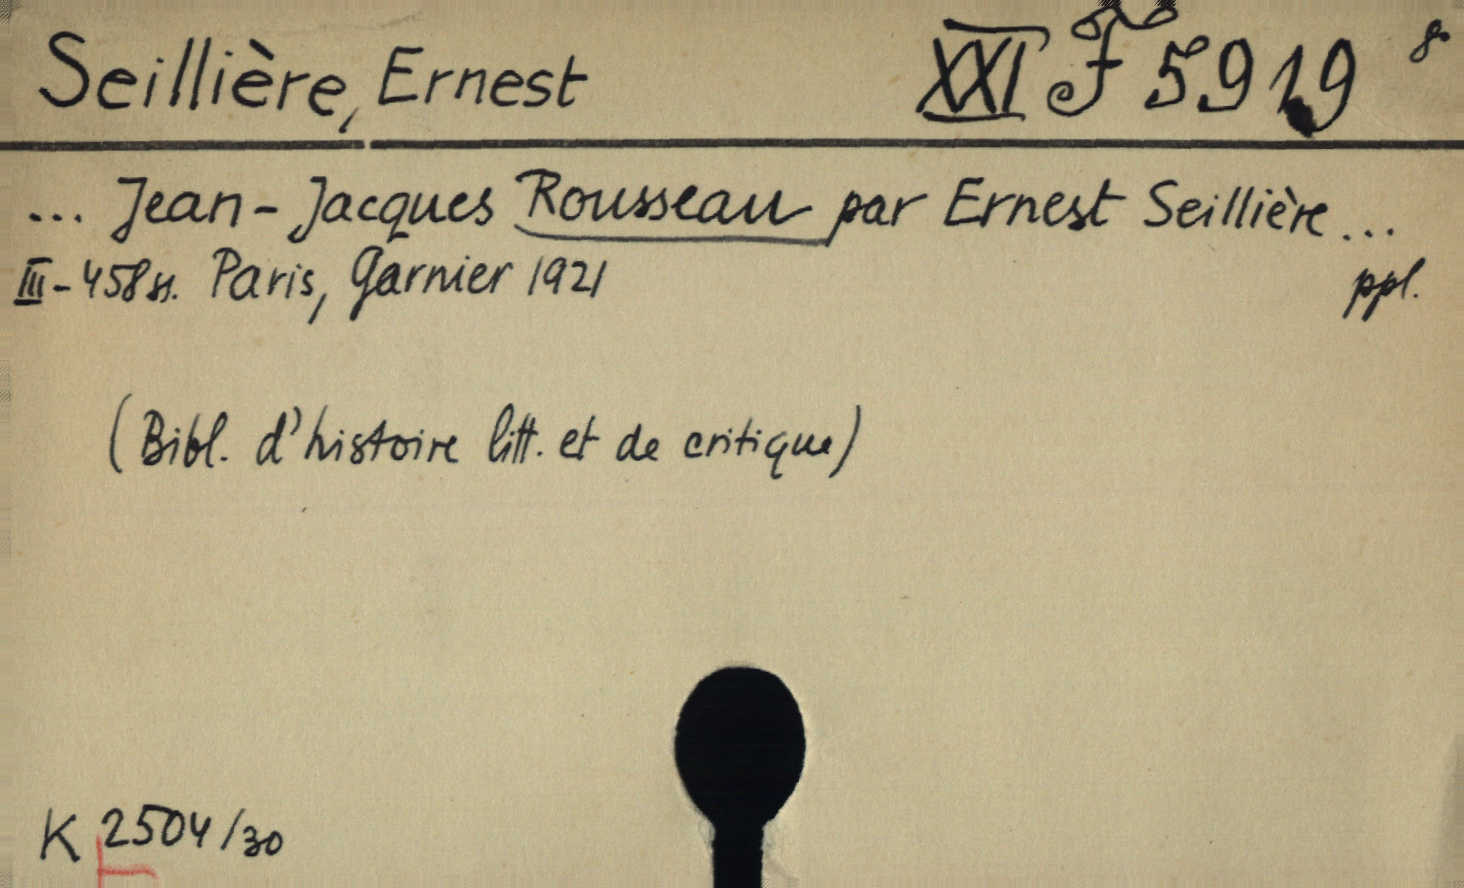 Seillière, Ernest
XXI F 5919 8°
... Jean-Jacques Rousseau par Ernest Seillière ...
III-458 ss. Paris, Garnier 1921
ppl.
(Bibl. d'histoire litt. et de critique)
K 2504/30